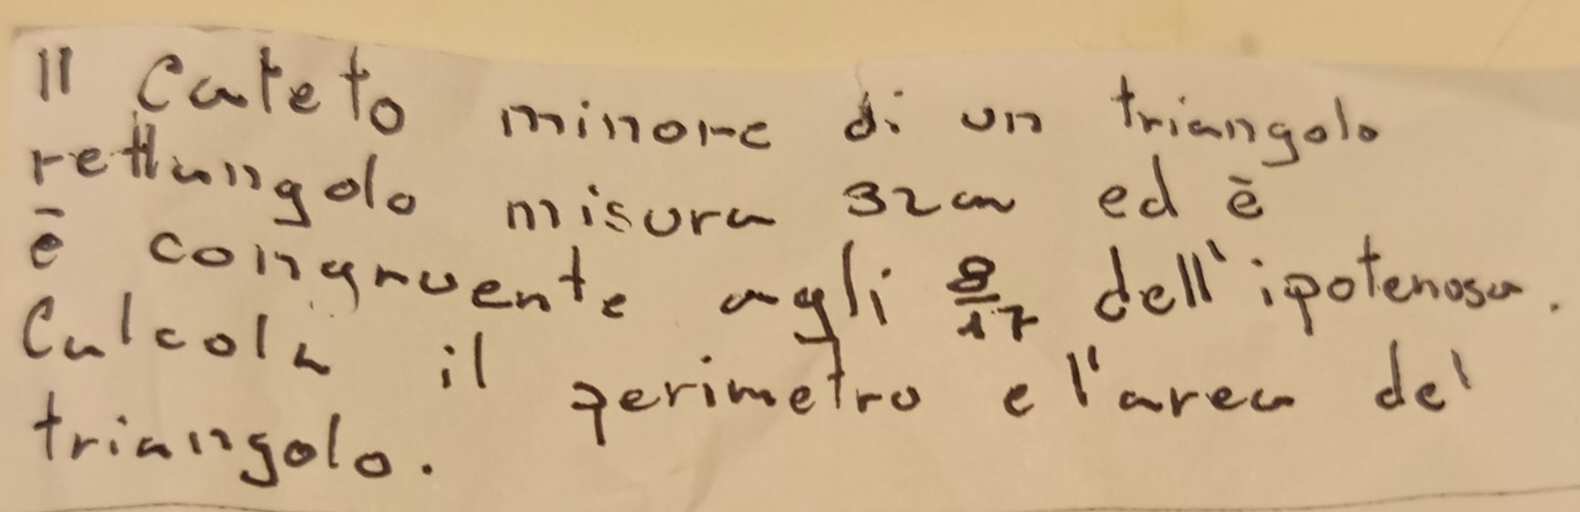 Il Cateto minore di un triangolo
rettangolo misura 32cm ed è
è congruente agli 8/17 dell'ipotenusa.
Calcola il perimetro e l'area del
triangolo.